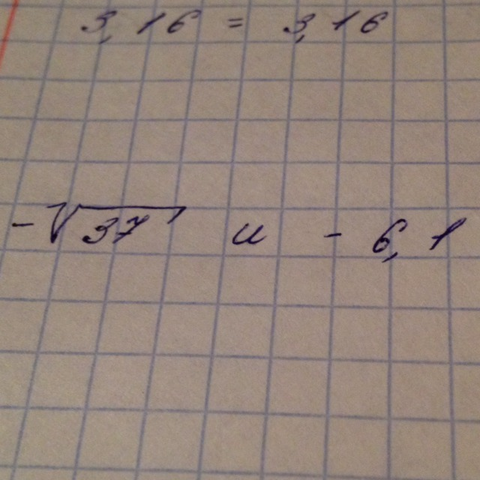 3,16 = 3,16
-√37 и - 6,1